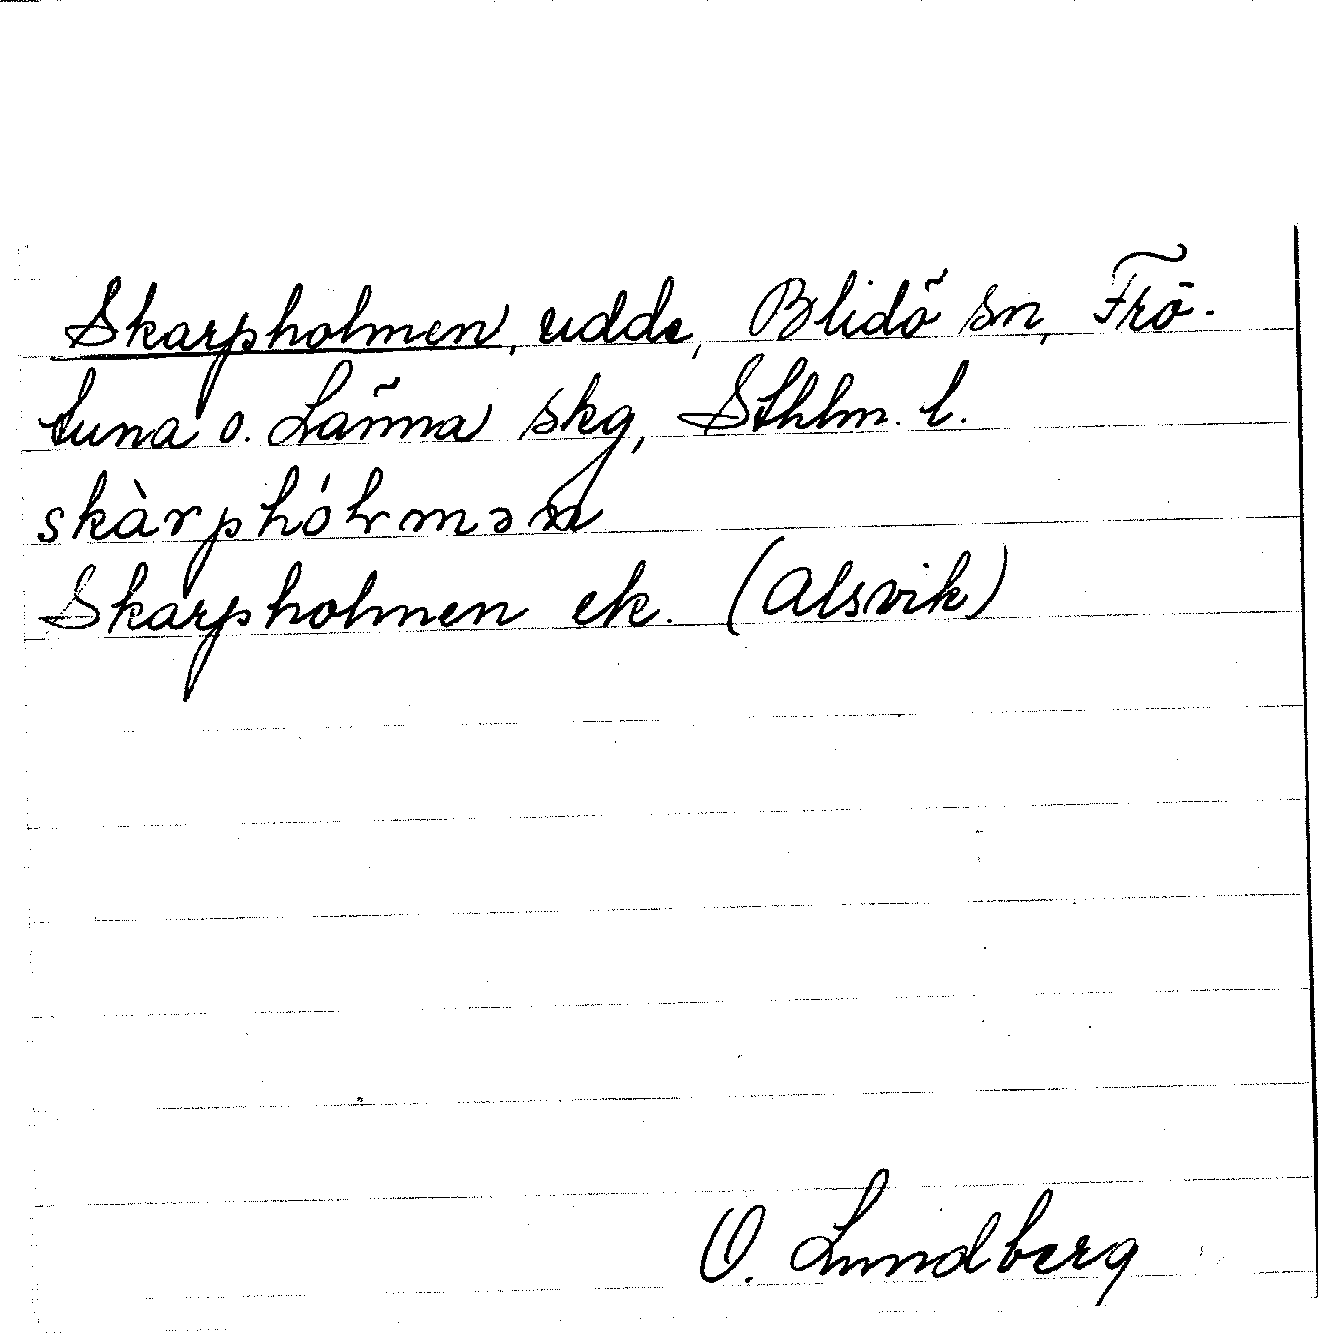 Skarpholmen, udde, Blidö sn, Frö-
tuna o. Länna skg, Sthlm. l.
skàrphólmən
Skarpholmen ek. (Alsvik)
O. Lundberg